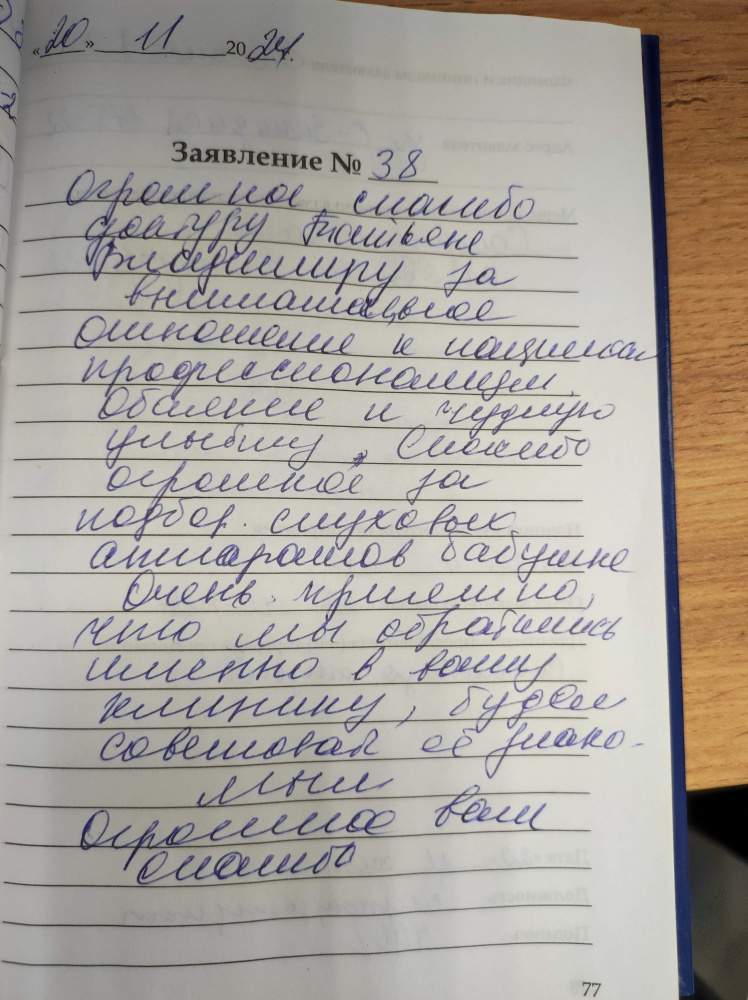 «20» 11 2024г.
Заявление № 38
Огромное спасибо
доктуру Татьяне
Владимиру за
внимательное
отношение к пациентам
профессионализм,
обаяние и чудную
улыбку. Спасибо
огромное за
подбор слуховых
аппаратов бабушке
Очень приятно,
что мы обратились
именно в вашу
клинику, будем
советовать её знако-
мым
Огромное вам
спасибо
77